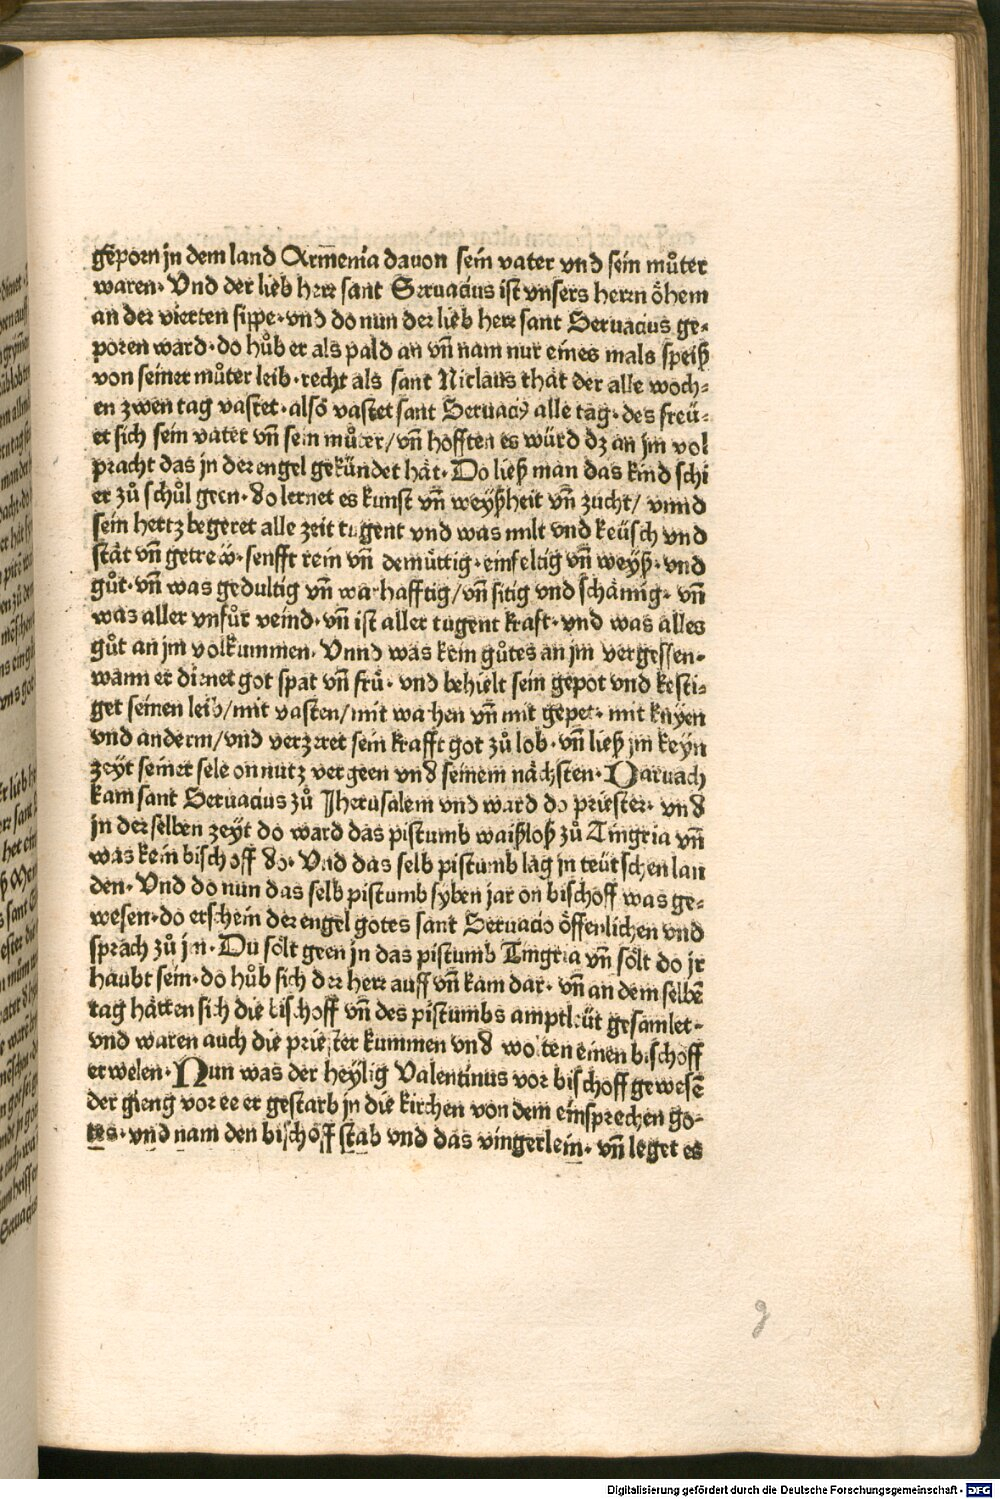 geporn in dem land Armenia davon sein vater vnd sein můter
waren. Vnd der lieb herr sant Seruacius ist vnsers herrn öhem
an der vierten sippe. vnd do nun der lieb herr sant Seruacius ge-
poren ward. do hůb er als pald an vn̄ nam nur eines mals speiß
von seiner můter leib. recht als sant Niclaus thät der alle woch-
en zwen tag vastet. also vastet sant Seruaciꝰ alle tag. des freü-
et sich sein vater vn̄ sein můter/ vn̄ hofften es würd dz an jm vol
pracht das jn der engel gekündet hät. Do ließ man das kind schi
er zů schůl geen. do lernet es kunst vn̄ weyßheit vn̄ zucht/ vnnd
sein hertz begeret alle zeit tugent vnd was milt vnd keüsch vnd
stät vn̄ getrew. senfft rein vn̄ demüttig. einfeltig vn̄ weyß. vnd
gůt. vn̄ was gedultig vn̄ warhafftig/ vn̄ sitig vnd schämig. vn̄
was aller vnfůr veind. vn̄ ist aller tugent kraft. vnd was alles
gůt an jm volkummen. Vnnd was kein gůtes an jm vergessen.
wann er dienet got spat vn̄ frü. vnd behielt sein gepot vnd kesti-
get seinen leib/ mit vasten/ mit wachen vn̄ mit gepet. mit knyen
vnd anderm/ vnd verzeret sein krafft got zů lob. vn̄ ließ jm keyn
zeyt seiner sele on nutz vergeen vnd seinem nächsten. Darnach
kam sant Seruacius zů Jherusalem vnd ward do priester. vnd
jn der selben zeyt do ward das pistumb waißloß zů Tingria vn̄
was kein bischoff do. Vnd das selb pistumb lag jn teütschen lan
den. Vnd do nun das selb pistumb syben jar on bischoff was ge-
wesen. do erschein der engel gotes sant Seruacio öffenlichen vnd
sprach zů jm. Du solt geen jn das pistumb Tingria vn̄ solt do jr
haubt sein. do hůb sich der herr auff vn̄ kam dar. vn̄ an dem selbē
tag hätten sich die bischoff vn̄ des pistumbs amptleüt gesamlet.
vnd waren auch die priester kummen vnd wolten einen bischoff
erwelen. Nun was der heylig Valentinus vor bischoff gewesē
der gieng vor ee er gestarb jn die kirchen von dem einsprechen go-
tes. vnd nam den bischoff stab vnd das vingerlein. vn̄ leget es
g
Digitalisierung gefördert durch die Deutsche Forschungsgemeinschaft - DFG